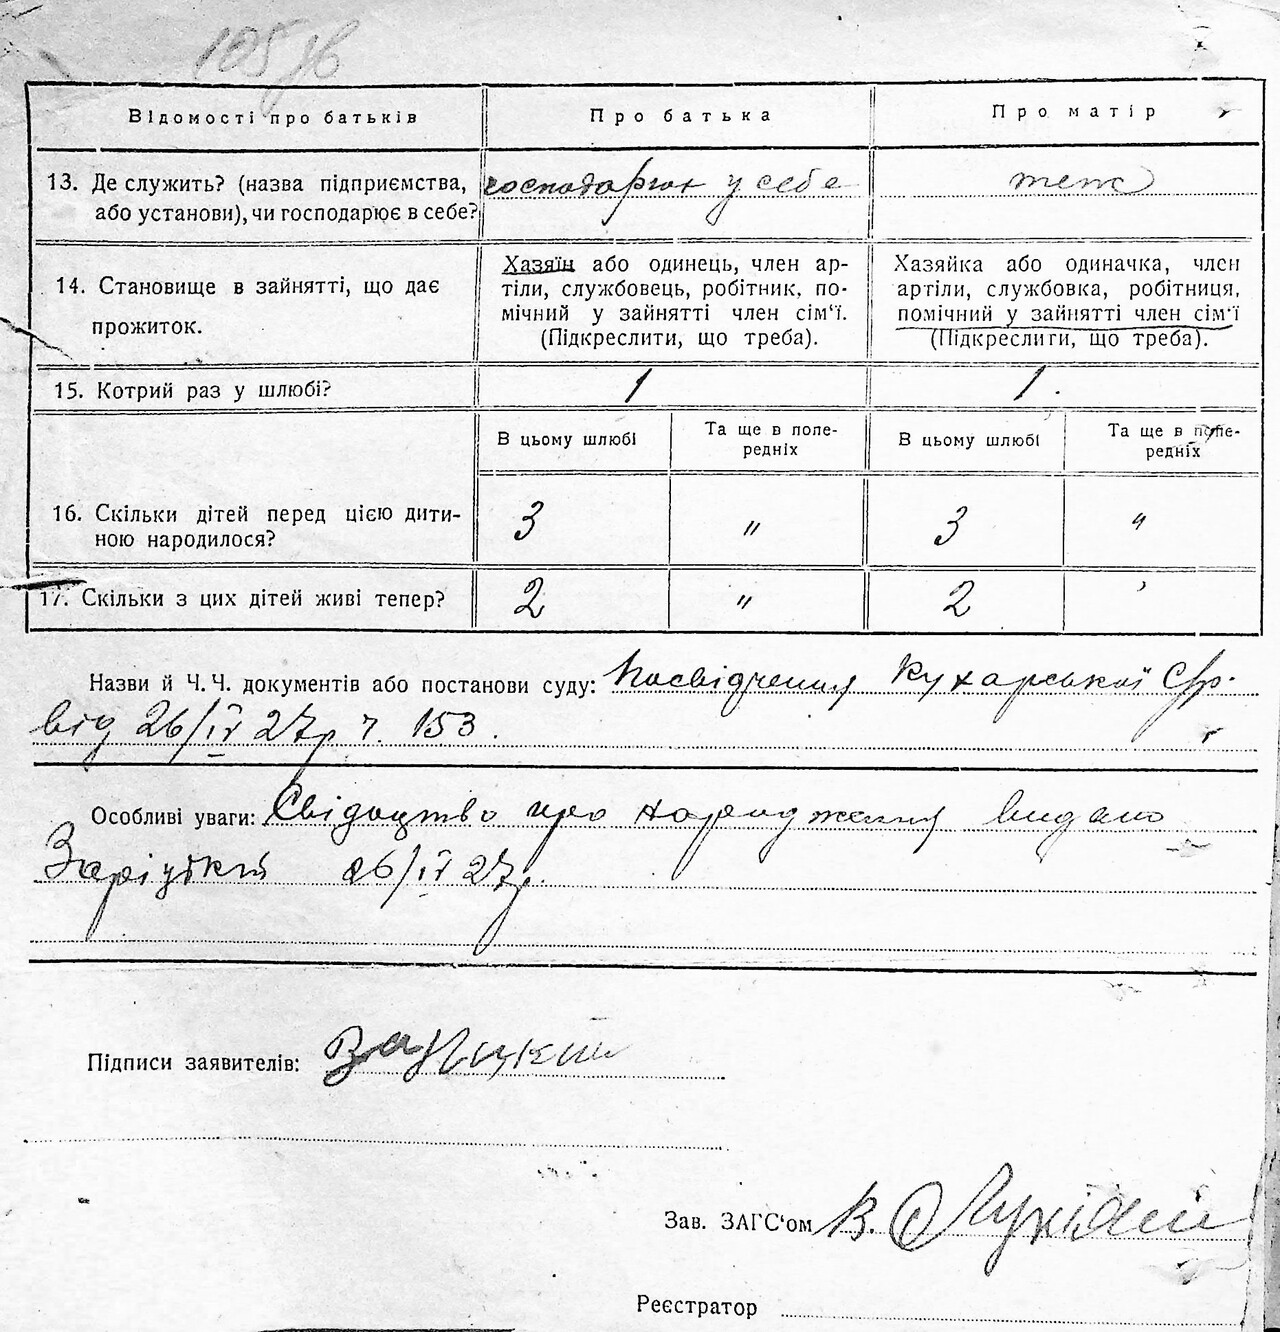 105 зв
Відомості про батьків
Про батька
Про матір
13. Де служить? (назва підприємства,
або установи), чи господарює в себе?
господарює у себе
теж
14. Становище в зайнятті, що дає
прожиток.
Хазяїн або одинець, член ар-
тіли, службовець, робітник, по-
мічний у зайнятті член сім'ї.
(Підкреслити, що треба).
Хазяйка або одиначка, член
артіли, службовка, робітниця,
помічний у зайнятті член сім'ї
(Підкреслити, що треба).
15. Котрий раз у шлюбі?
1
1.
В цьому шлюбі
Та ще в попе-
редніх
В цьому шлюбі
Та ще в попе-
редніх
16. Скільки дітей перед цією дити-
ною народилося?
3
"
3
"
17. Скільки з цих дітей живі тепер?
2
"
2
Назви й Ч. Ч. документів або постанови суду: Посвідчення Кухарської С/р.
від 26/IV 27р ч. 153.
Особливі уваги: Свідоцтво про народження видано
Заріцький 26/IV 27р.
Підписи заявителів: Заріцкий
Зав. ЗАГС'ом В.
Реєстратор